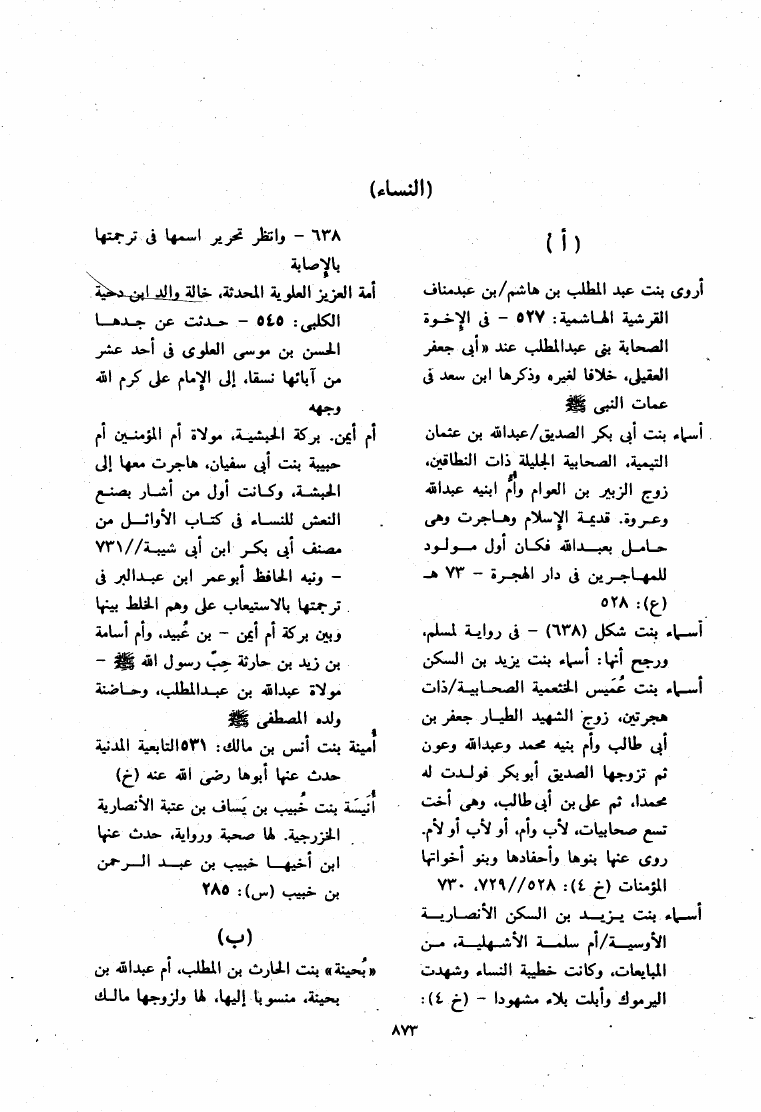 (النساء)
( أ )
أروى بنت عبد المطلب بن هاشم/بن عبدمناف
القرشية الهاشمية: ٥٢٧ – فى الإخوة
الصحابة بنى عبدالمطلب عند «أبى جعفر
العقيلى، خلافا لغيره وذكرها ابن سعد فى
عمات النبى ﷺ
أسماء بنت أبى بكر الصديق/عبدالله بن عثمان
التيمية، الصحابية الجليلة ذات النطاقين،
زوج الزبير بن العوام وأم ابنيه عبدالله
وعروة. قديمة الإسلام وهاجرت وهى
حامل بعبدالله فكان أول مولود
للمهاجرين فى دار الهجرة – ٧٣ هـ
(ع): ٥٢٨
أسماء بنت شكل (٦٣٨) – فى رواية لمسلم،
ورجح أنها: أسماء بنت يزيد بن السكن
أسماء بنت عُمَيس الخثعمية الصحابية/ذات
هجرتين، زوج الشهيد الطيار جعفر بن
أبى طالب وأم بنيه محمد وعبدالله وعون
ثم تزوجها الصديق أبوبكر فولدت له
محمدا، ثم على بن أبى طالب، وهى أخت
تسع صحابيات، لأب وأم، أو لأب أو لأم.
روى عنها بنوها وأحفادها وبنو أخواتها
المؤمنات (خ ٤): ٥٢٨//٧٢٩، ٧٣٠
أسماء بنت يزيد بن السكن الأنصارية
الأوسية/أم سلمة الأشهلية، من
المبايعات، وكانت خطيبة النساء وشهدت
اليرموك وأبلت بلاء مشهودا – (خ ٤):
٦٣٨ – وانظر تحرير اسمها فى ترجمتها
بالإصابة
أمة العزيز العلوية المحدثة، خالة والد ابن دحية
الكلبى: ٥٤٥ – حدثت عن جدها
الحسن بن موسى العلوى فى أحد عشر
من آبائها نسقا، إلى الإمام على كرم الله
وجهه
أم أيمن. بركة الحبشية، مولاة أم المؤمنين أم
حبيبة بنت أبى سفيان، هاجرت معها إلى
الحبشة، وكانت أول من أشار بصنع
النعش للنساء فى كتاب الأوائل من
مصنف أبى بكر ابن أبى شيبة//٧٣١
– ونبه الحافظ أبوعمر ابن عبدالبر فى
ترجمتها بالاستيعاب على وهم الخلط بينها
وبين بركة أم أيمن – بن عُبيد، وأم أسامة
بن زيد بن حارثة حِبّ رسول الله ﷺ –
مولاة عبدالله بن عبدالمطلب، وحاضنة
ولده المصطفى ﷺ
أُمينة بنت أنس بن مالك: ٥٣١التابعية المدنية
حدث عنها أبوها رضى الله عنه (خ)
أُنَيسَة بنت خُبيب بن يَساف بن عتبة الأنصارية
الخزرجية. لها صحبة ورواية، حدث عنها
ابن أخيها خبيب بن عبد الرحمن
بن خبيب (س): ٢٨٥
(ب)
«بُحينة» بنت الحارث بن المطلب، أم عبدالله بن
بحينة، منسوبا إليها، لها ولزوجها مالك
٨٧٣